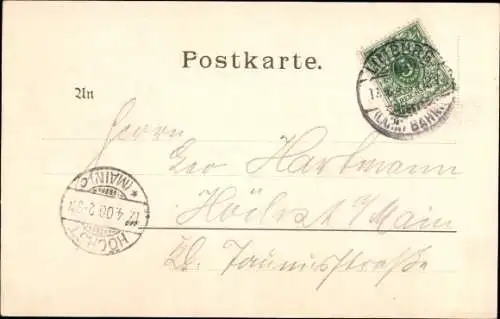 Postkarte.
LIMBURG
(LAHN) BAHNH.
An
Herrn
Geo Hartmann
Höchst a/Main
Taunusstraße
*(MAIN)*
17.4.00.2-3N
HÖCHST